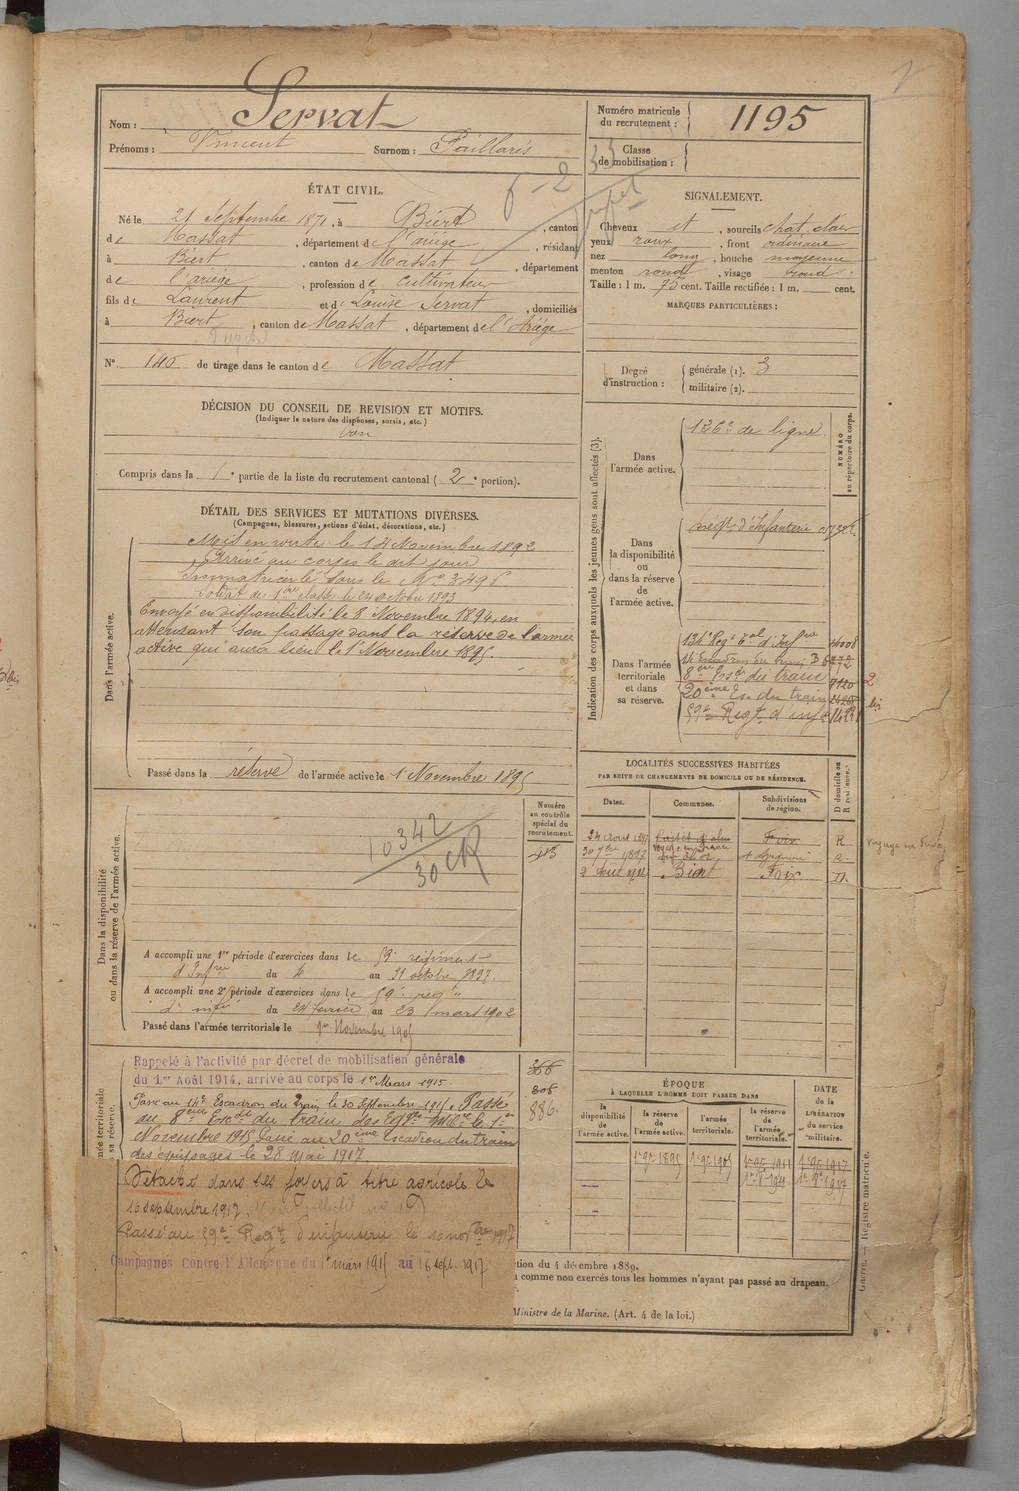 Nom : Servat
Prénoms : Vincent Surnom : Paillarés
Numéro matricule du recrutement : 1195
Classe de mobilisation :
ÉTAT CIVIL.
Né le 21 Septembre 1871, à Biert, canton
de Massat, département de l'ariège, résidant
à Biert, canton de Massat, département
de l'ariège, profession de cultivateur
fils de Laurent et de Louise Servat, domiciliés
à Biert, canton de Massat, département de l'Ariège
N° 140 de tirage dans le canton de Massat
DÉCISION DU CONSEIL DE REVISION ET MOTIFS.
(Indiquer la nature des dispenses, sursis, etc.)
bon
Compris dans la 1e partie de la liste du recrutement cantonal (2e portion).
DÉTAIL DES SERVICES ET MUTATIONS DIVERSES.
(Campagnes, blessures, actions d'éclat, décorations, etc.)
Dans l'armée active.
Mis en route le 14 Novembre 1892
Arrivé au corps le dit jour
Immatriculé sous le No 3496
Soldat de 1ère classe le 24 octobre 1893
Envoyé en disponibilité le 8 Novembre 1894, en
attendant son passage dans la réserve de l'armée
active qui aura lieu le 1 Novembre 1895.
Passé dans la réserve de l'armée active le 1 Novembre 1895
Dans la disponibilité
ou dans la réserve de l'armée active.
Numéro au contrôle spécial du recrutement.
413
10342
30
A accompli une 1re période d'exercices dans le 59e régiment
d'Infrie du 4 au 31 octobre 1897.
A accompli une 2e période d'exercices dans le 59e reg
d'infie du 24 février au 23 mars 1902
Passé dans l'armée territoriale le 1er Novembre 1905
Rappelé à l'activité par décret de mobilisation générale
du 1er Août 1914, arrivé au corps le 1er Mars 1915.
Passé au 14e Escadron du Train le 30 Septembre 1915. Passé
au 8ème Escon du train des Eqges Milres le 1er
Novembre 1915 Passé au 20ème Escadron du train
des équipages le 28 Mai 1917.
366
806
886
Détaché dans ses foyers à titre agricole le
16 septembre 1917.
Passé au 59e Regt d'infanterie le 10 novbre 1917
Campagnes contre l'Allemagne du 1er mars 1915 au 16 sept. 1917
SIGNALEMENT.
Cheveux et, sourcils chat. clair
yeux roux, front ordinaire
nez long, bouche moyenne
menton rond, visage rond.
Taille : 1 m. 75 cent. Taille rectifiée : 1 m. cent.
MARQUES PARTICULIÈRES :
Degré d'instruction : générale (1). 3
militaire (2).
Indication des corps auxquels les jeunes gens sont affectés (3).
NUMÉRO au répertoire du corps.
Dans l'armée active. 126e de ligne
Dans la disponibilité ou dans la réserve de l'armée active. régt d'Infanterie
Dans l'armée territoriale et dans sa réserve.
134e Regt tal d'Infrie
14 Escadron du train
8ème Escon du train 7120
20ème Esc du train
59e Regt d'infie
LOCALITÉS SUCCESSIVES HABITÉES
PAR SUITE DE CHANGEMENTS DE DOMICILE OU DE RÉSIDENCE.
Dates. Communes. Subdivisions de région. D domicile ou R résidence.
24 Avril 1897 Foix R
30 7bre 1897 Voyage en France Avignon R.
2 Août 1912 Biert Foix D.
ÉPOQUE
À LAQUELLE L'HOMME DOIT PASSER DANS
la disponibilité de l'armée active. la réserve de l'armée active. l'armée territoriale. la réserve de l'armée territoriale. DATE de la LIBÉRATION du service militaire.
1er 9bre 1895 1er 9bre 1905 1er 9bre 1911 1er 9bre 1917
ction du 4 décembre 1889.
comme non exercés tous les hommes n'ayant pas passé au drapeau.
Ministre de la Marine. (Art. 4 de la loi.)
Guerre. — Registre matricule.